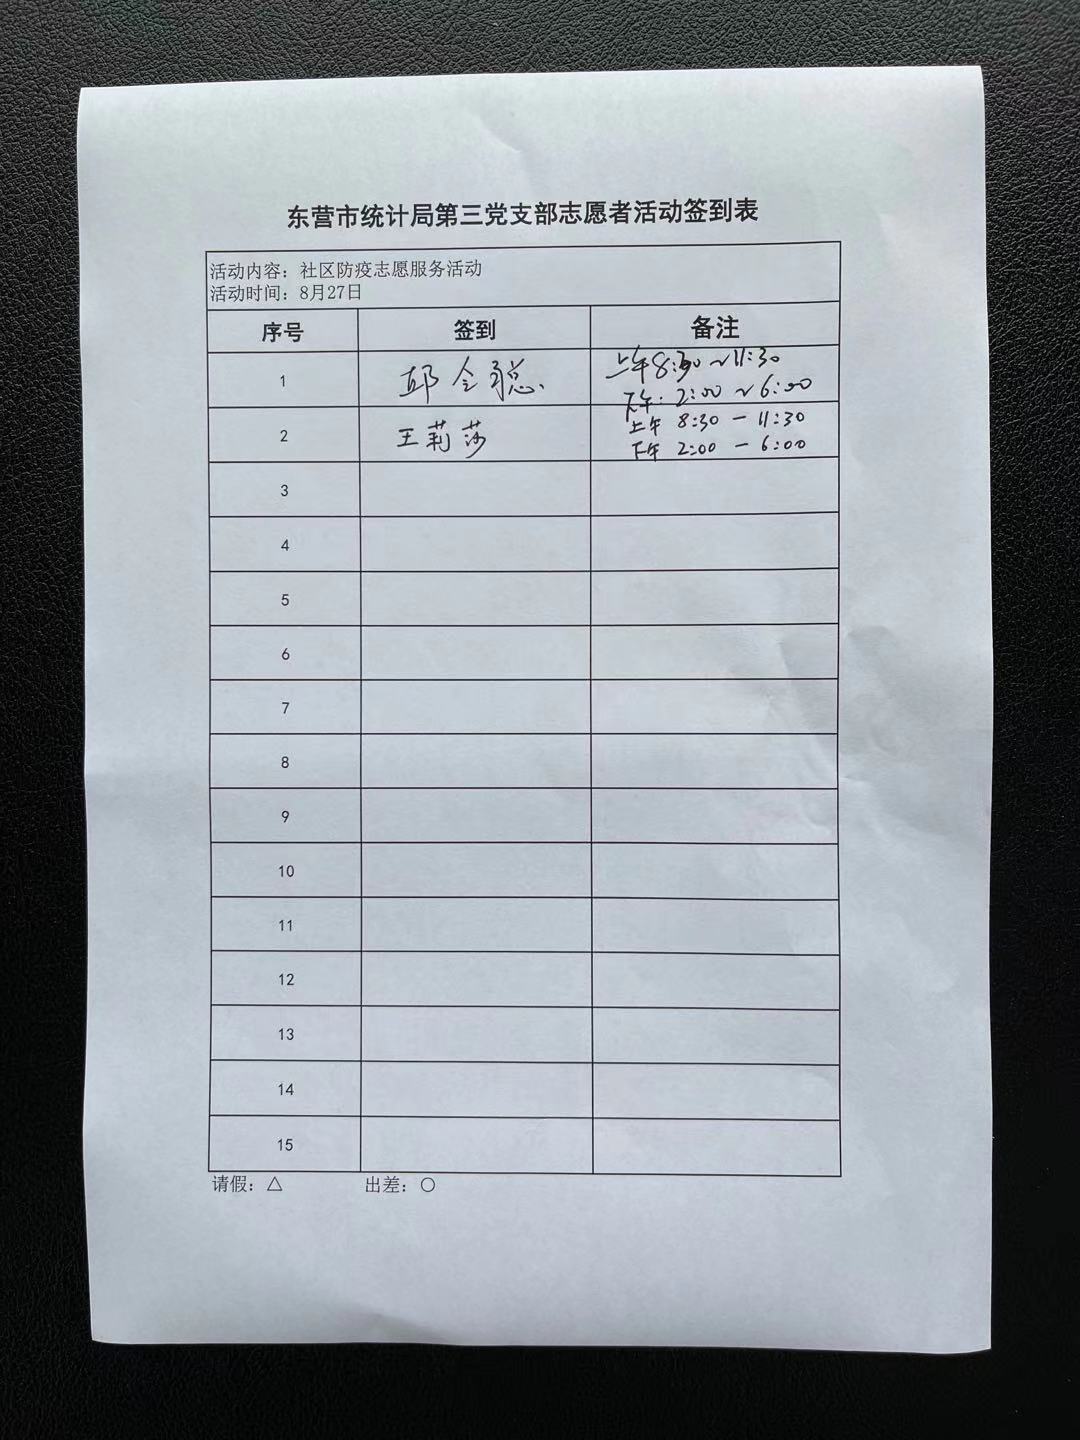 东营市统计局第三党支部志愿者活动签到表
活动内容：社区防疫志愿服务活动
活动时间：8月27日
序号 签到 备注
1 邱令聪 上午8:30~11:30
下午：2:00~6:00
2 王莉莎 上午 8:30-11:30
下午 2:00-6:00
3
4
5
6
7
8
9
10
11
12
13
14
15
请假：△ 出差：○